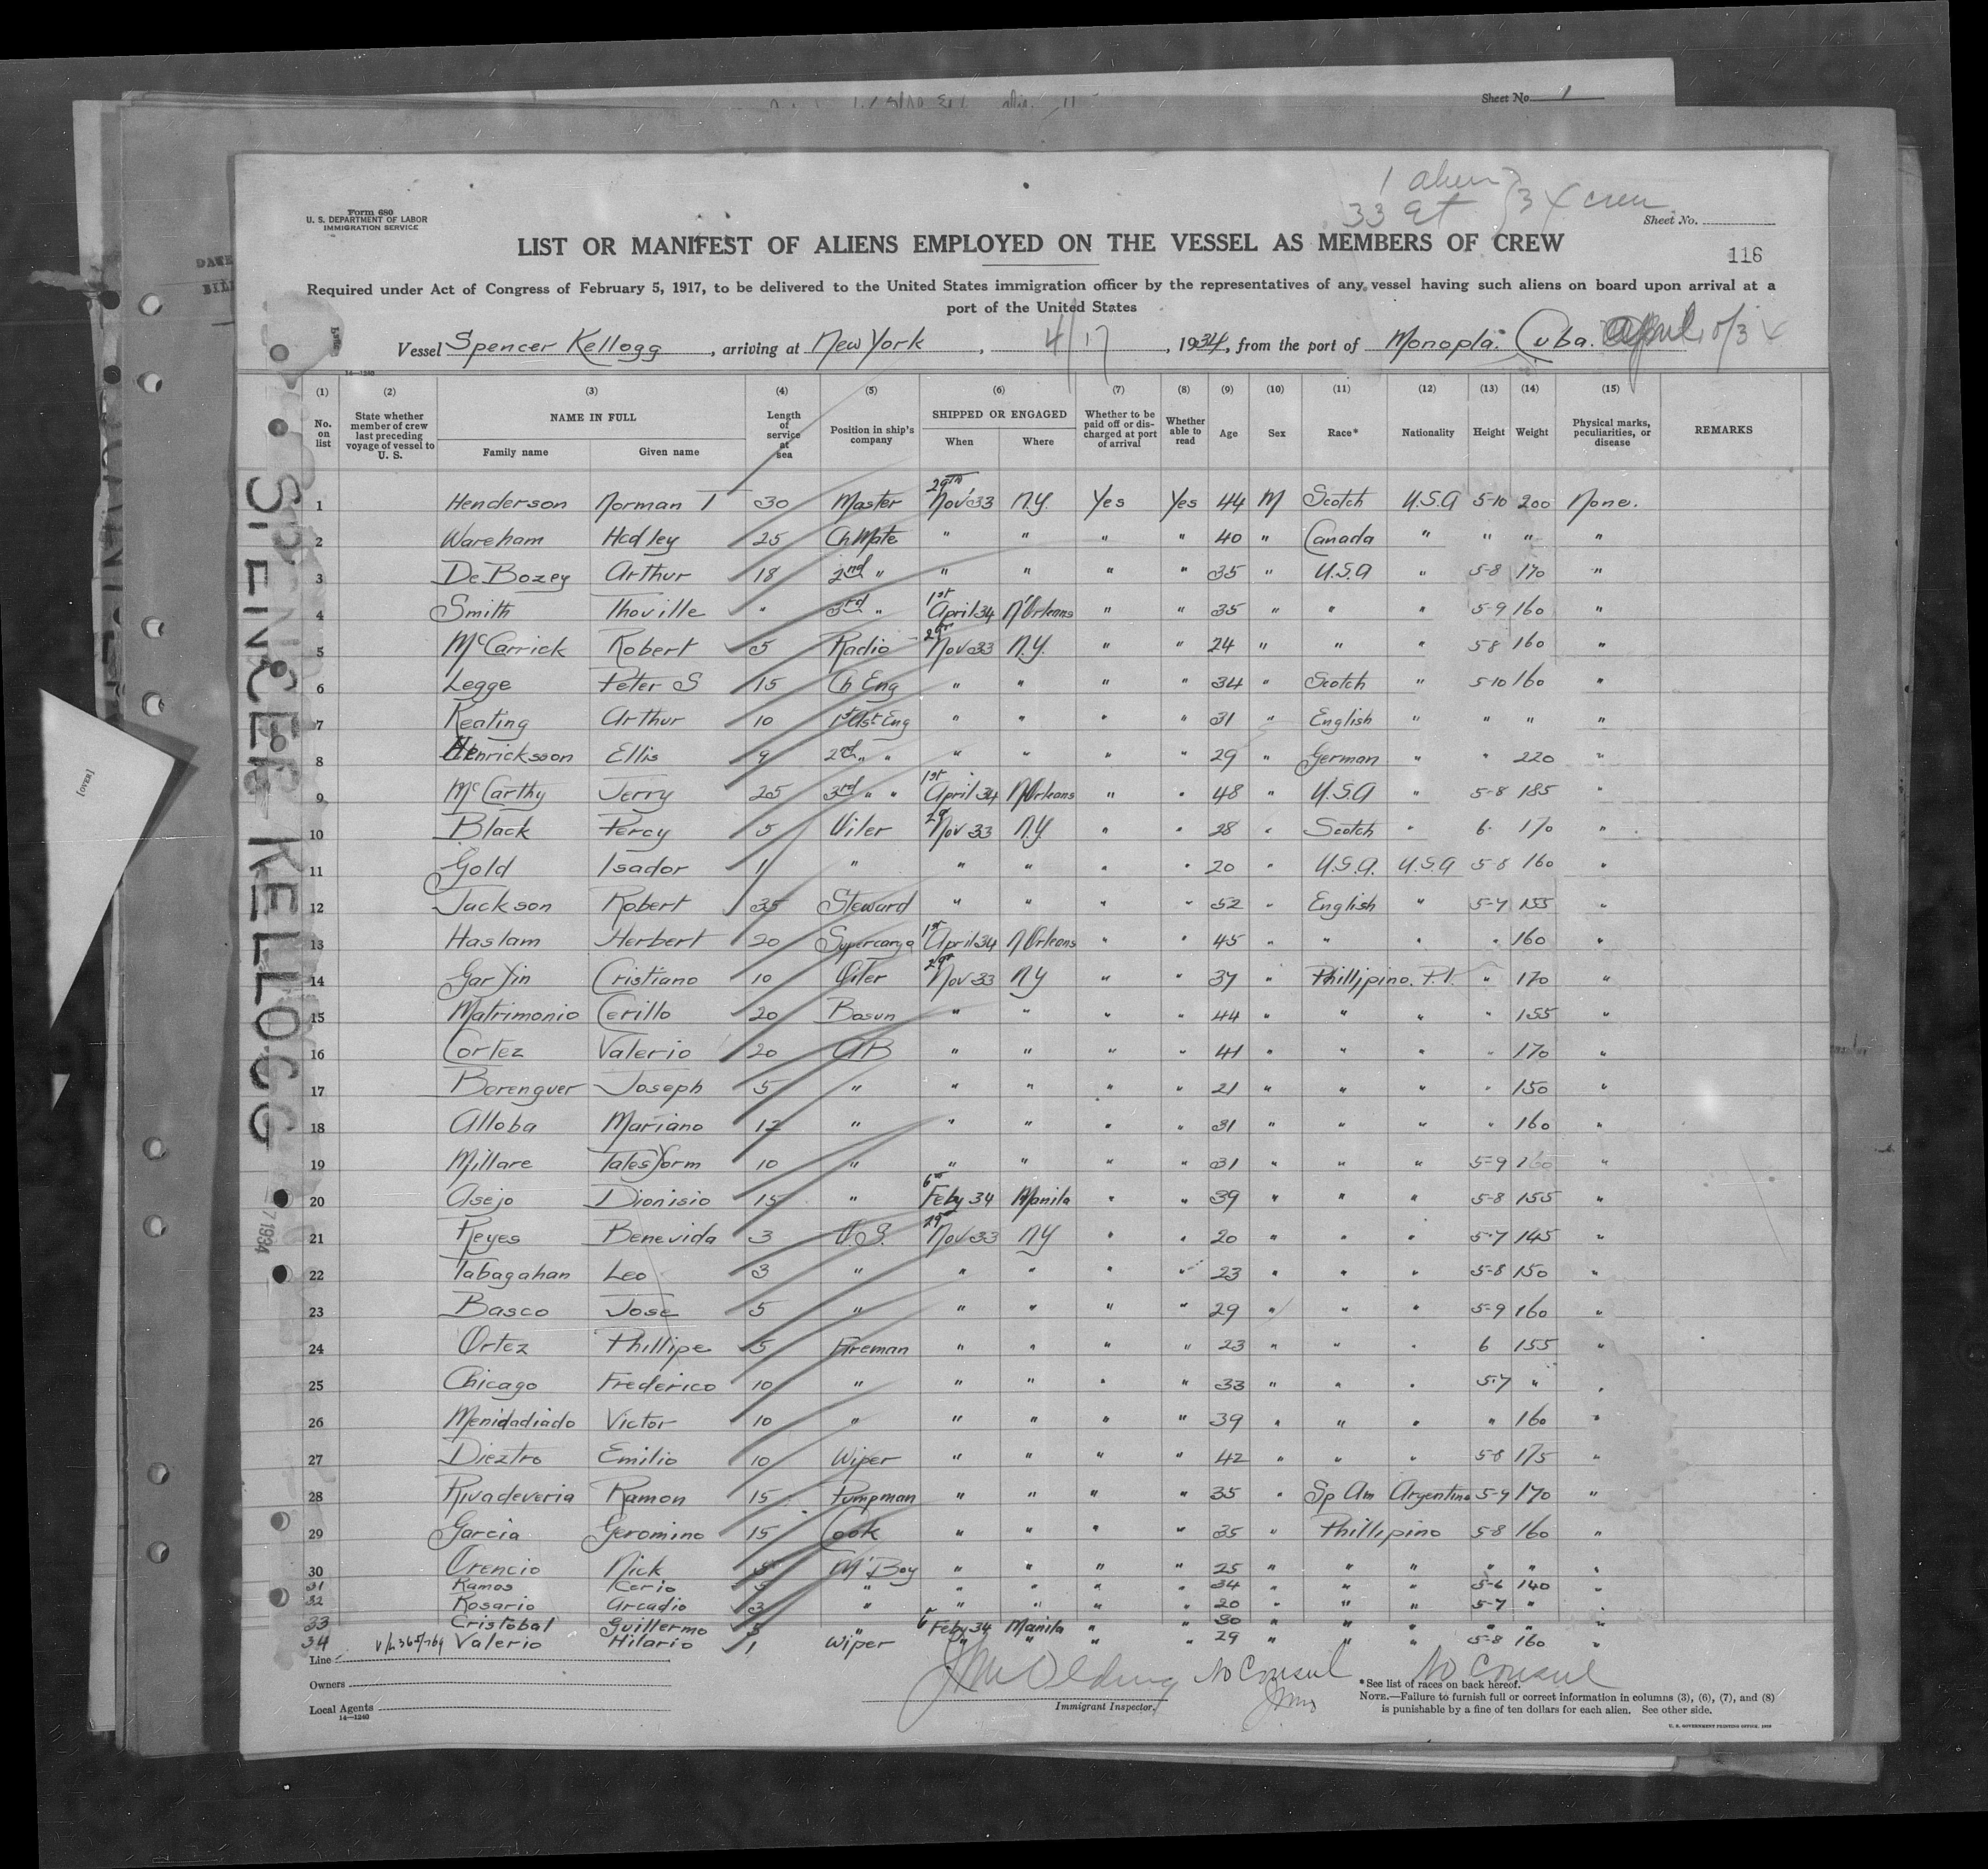 Sheet No. 1
1 alien
33 34 crew
Form 680
U. S. DEPARTMENT OF LABOR
IMMIGRATION SERVICE
Sheet No.
LIST OR MANIFEST OF ALIENS EMPLOYED ON THE VESSEL AS MEMBERS OF CREW
116
Required under Act of Congress of February 5, 1917, to be delivered to the United States immigration officer by the representatives of any vessel having such aliens on board upon arrival at a
port of the United States
Vessel Spencer Kellogg, arriving at New York, 4/17, 1934, from the port of Monopla. Cuba. April
14—1240
(1) (2) (3) (4) (5) (6) (7) (8) (9) (10) (11) (12) (13) (14) (15)
No. on list State whether member of crew last preceding voyage of vessel to U. S. NAME IN FULL Family name Given name Length of service at sea Position in ship's company SHIPPED OR ENGAGED When Where Whether to be paid off or discharged at port of arrival Whether able to read Age Sex Race* Nationality Height Weight Physical marks, peculiarities, or disease REMARKS
1 Henderson Norman T 30 Master 29TH Nov 33 N.Y. Yes Yes 44 M Scotch U.S.A 5-10 200 None.
2 Wareham Hadley 25 Ch Mate " " " " 40 " Canada " " " "
3 De Bozey Arthur 18 2nd " " " " " 35 " U.S.A " 5-8 170 "
4 Smith Thoville " 3rd " 1st April 34 N'Orleans " " 35 " " " 5-9 160 "
5 McCarrick Robert 5 Radio 29 Nov 33 N.Y. " " 24 " " " 5-8 160 "
6 Legge Peter S 15 Ch Eng " " " " 34 " Scotch " 5-10 160 "
7 Keating Arthur 10 1st Ast Eng " " " " 31 " English " " " "
8 Henricksson Ellis 9 2nd " " " " " " 29 " German " " 220 "
9 McCarthy Jerry 25 3rd " " 1st April 34 N Orleans " " 48 " U.S.A " 5-8 185 "
10 Black Percy 5 Oiler 29 Nov 33 N.Y. " " 28 " Scotch " 6. 170 "
11 Gold Isador 1 " " " " " 20 " U.S.A. U.S.A 5-8 160 "
12 Jackson Robert 35 Steward " " " " 52 " English " 5-7 155 "
13 Haslam Herbert 20 Supercargo 1st April 34 N Orleans " " 45 " " " " 160 "
14 Cristiano 10 Oiler 29 Nov 33 NY " " 37 " Phillipino. P.I. " 170 "
15 Matrimonio Cerillo 20 Bosun " " " " 44 " " " " 155 "
16 Cortez Valerio 20 AB " " " " 41 " " " " 170 "
17 Berenguer Joseph 5 " " " " " 21 " " " " 150 "
18 Alloba Mariano 12 " " " " " 31 " " " " 160 "
19 Millare 10 " " " " " 31 " " " 5-9 160 "
20 Asejo Dionisio 15 " 6th Feby 34 Manila " " 39 " " " 5-8 155 "
21 Reyes Benevida 3 O.S. 29 Nov 33 NY " " 20 " " " 5-7 145 "
22 Tabagahan Leo 3 " " " " " 23 " " " 5-8 150 "
23 Basco Jose 5 " " " " " 29 " " " 5-9 160 "
24 Ortez Phillipe 5 Fireman " " " " 23 " " " 6 155 "
25 Chicago Frederico 10 " " " " " 33 " " " 5-7 " "
26 Menidadiado Victor 10 " " " " " 39 " " " " 160 "
27 Dieztro Emilio 10 Wiper " " " " 42 " " " 5-8 175 "
28 Rivadeveria Ramon 15 Pumpman " " " " 35 " Sp Am Argentina 5-7 170 "
29 Garcia Geromino 15 Cook " " " " 35 " Phillipino 5-8 160 "
30 Orencio Nick 5 M'Boy " " " " 25 " " " " " "
31 Ramos Kerio 5 " " " " " 34 " " " 5-6 140 "
32 Rosario Arcadio 3 " " " " " 20 " " " 5-7 " "
33 Cristobal Guillermo 5 " 6 Feby 34 Manila " " 30 " " " " " "
34 Valerio Hilario 1 Wiper " " " " 29 " " " 5-8 160 "
Line
Owners
Local Agents
14—1240
No Consul
No Consul
Immigrant Inspector.
*See list of races on back hereof.
NOTE.—Failure to furnish full or correct information in columns (3), (6), (7), and (8)
is punishable by a fine of ten dollars for each alien. See other side.
SPENCER KELLOGG
[OVER]